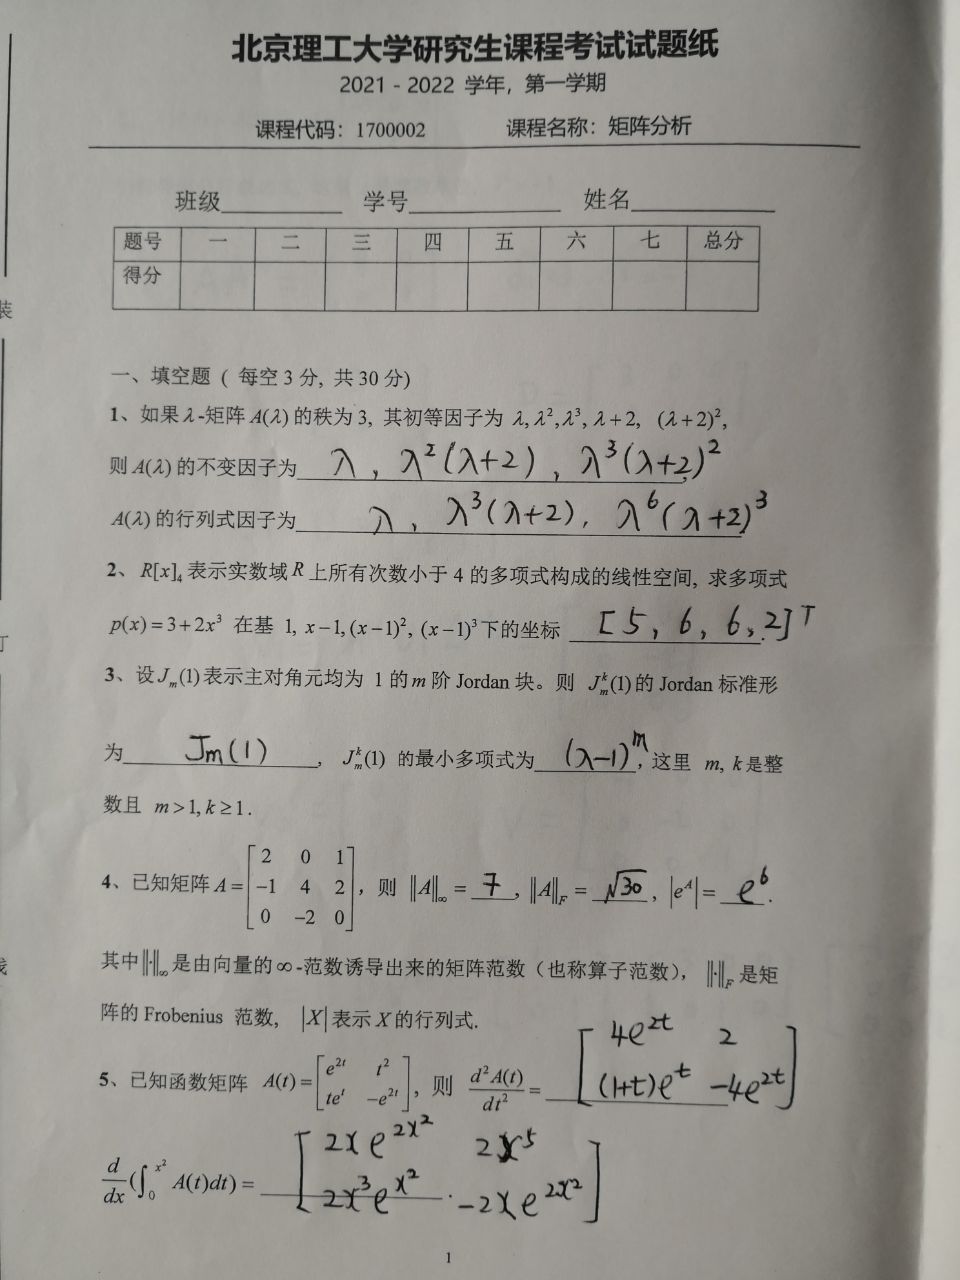 北京理工大学研究生课程考试试题纸
2021 - 2022 学年，第一学期
课程代码：1700002 课程名称：矩阵分析
班级 学号 姓名
题号 一 二 三 四 五 六 七 总分
得分
装
一、填空题 ( 每空 3 分, 共 30 分)
1、如果 λ-矩阵 A(λ) 的秩为 3, 其初等因子为 λ, λ², λ³, λ+2, (λ+2)²,
则 A(λ) 的不变因子为 λ , λ²(λ+2) , λ³(λ+2)²
A(λ) 的行列式因子为 λ , λ³(λ+2), λ⁶(λ+2)³
2、R[x]₄ 表示实数域 R 上所有次数小于 4 的多项式构成的线性空间, 求多项式
p(x) = 3+2x³ 在基 1, x−1, (x−1)², (x−1)³ 下的坐标 [5, 6, 6, 2]ᵀ
订
3、设 Jₘ(1) 表示主对角元均为 1 的 m 阶 Jordan 块。则 Jₘᵏ(1) 的 Jordan 标准形
为 Jm(1) , Jₘᵏ(1) 的最小多项式为 (λ−1)ᵐ, 这里 m, k 是整
数且 m>1, k≥1.
4、已知矩阵 A = [2 0 1; −1 4 2; 0 −2 0], 则 ‖A‖∞ = 7 , ‖A‖F = √30 , |eᴬ| = e⁶ .
其中‖·‖∞ 是由向量的 ∞-范数诱导出来的矩阵范数（也称算子范数）， ‖·‖F 是矩
线
阵的 Frobenius 范数, |X| 表示 X 的行列式.
5、已知函数矩阵 A(t) = [e²ᵗ t²; teᵗ −e²ᵗ], 则 d²A(t)/dt² = [4e²ᵗ 2; (1+t)eᵗ −4e²ᵗ]
d/dx (∫₀^{x²} A(t)dt) = [2xe^{2x²} 2x⁵; 2x³e^{x²} −2xe^{2x²}] .
1